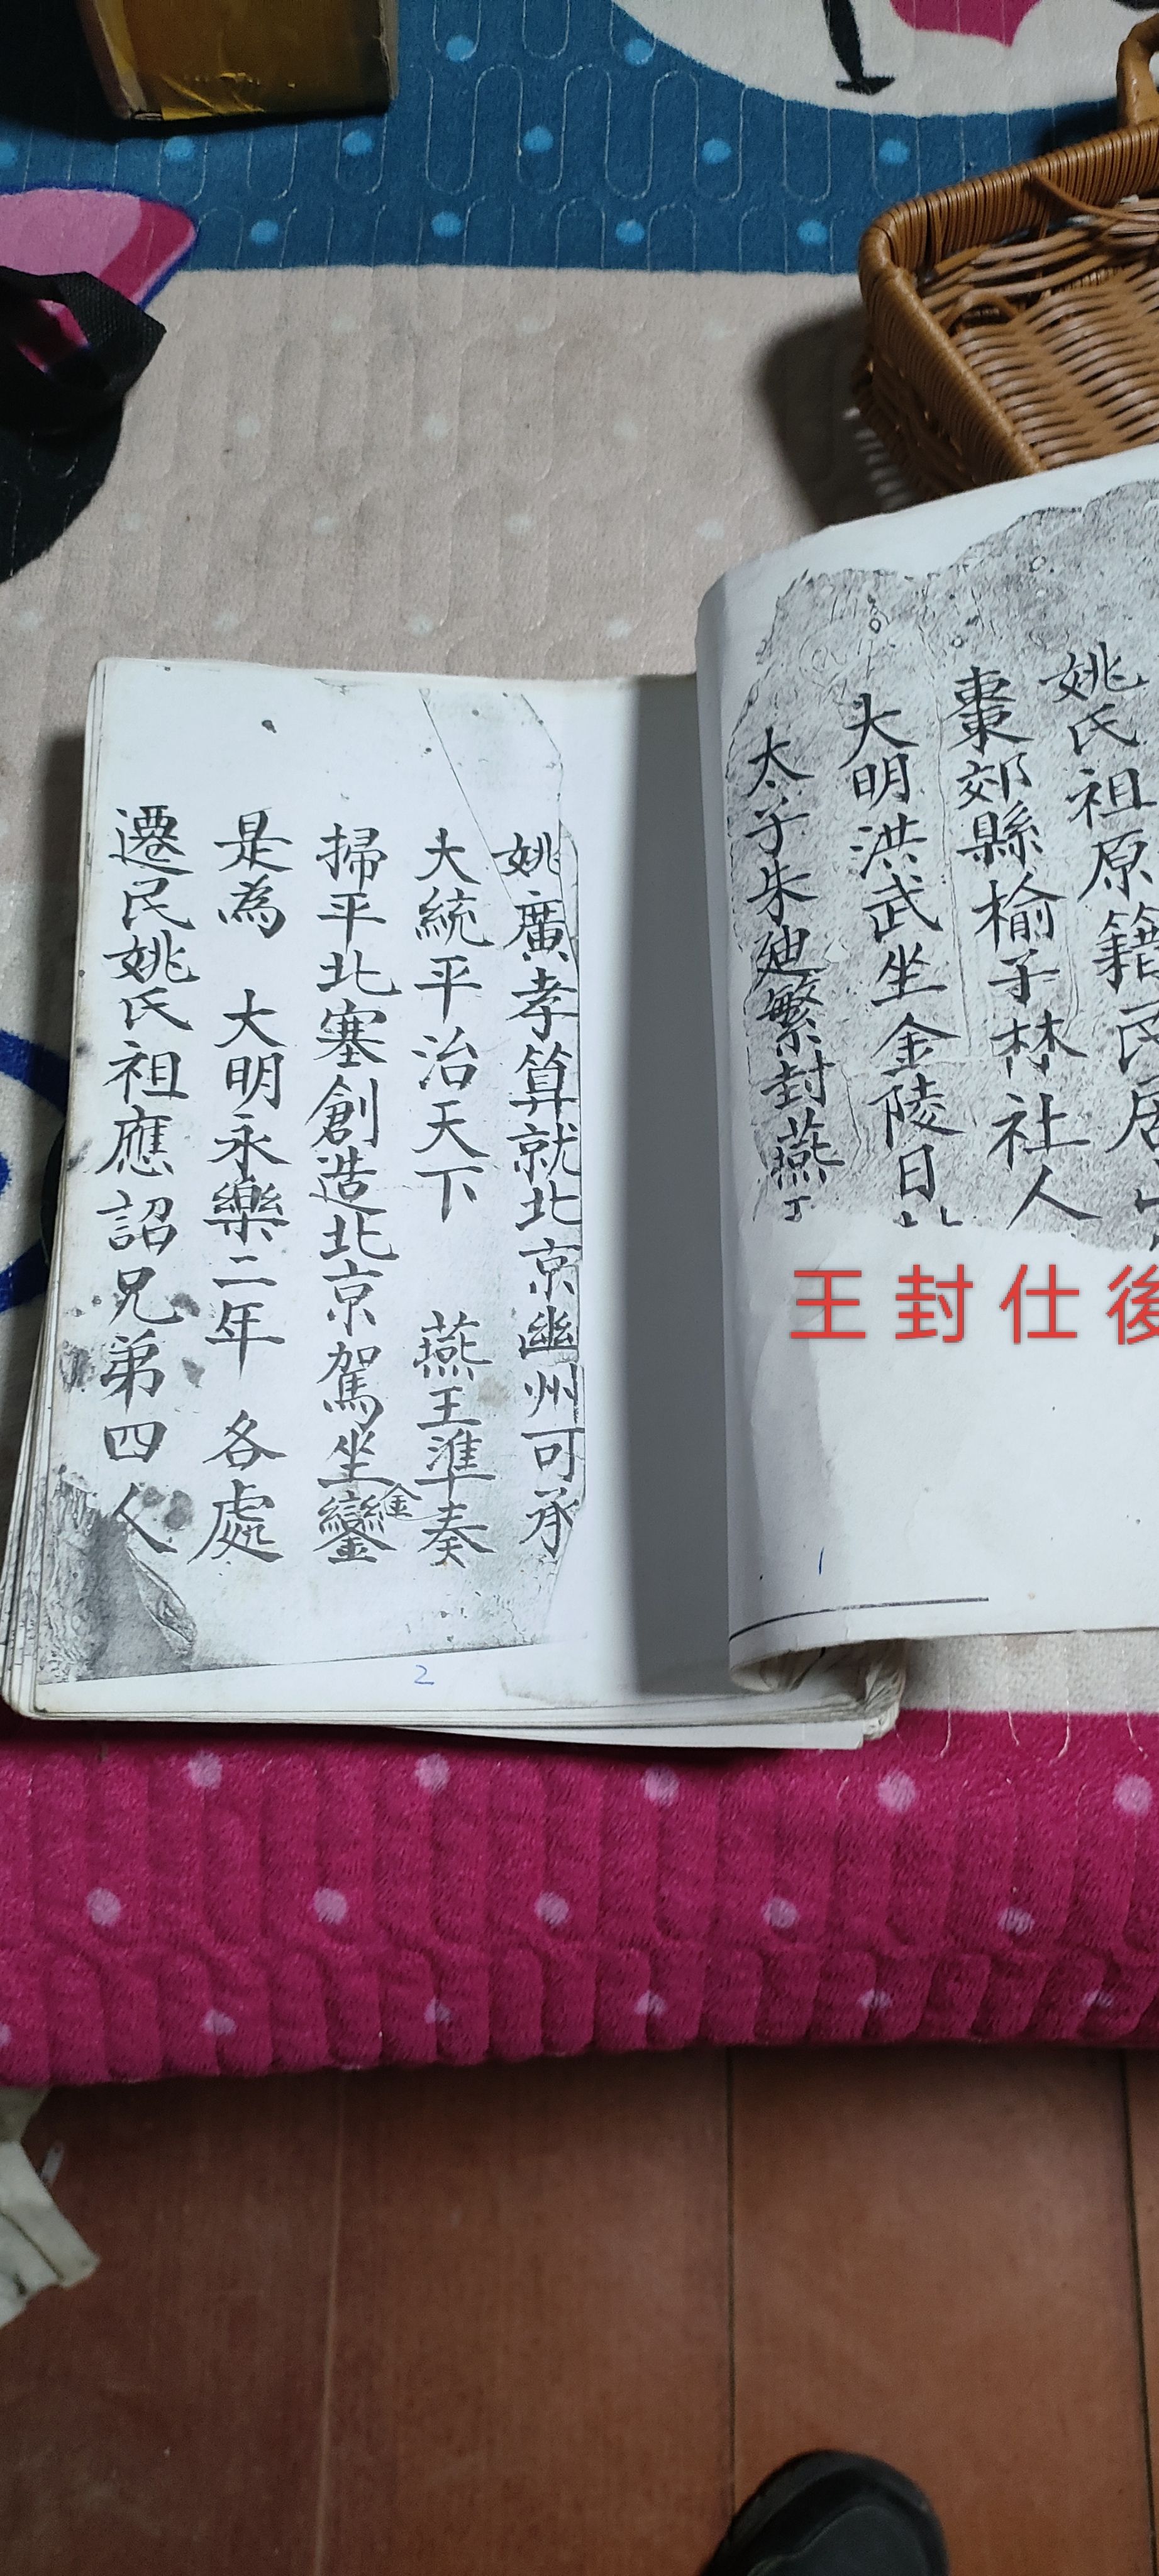 姚氏祖原籍民居山
棗郊縣榆子林社人
大明洪武坐金陵日
太子朱廸繁封燕
王封仕後
1
姚廣孝算就北京幽州可承
大統平治天下 燕王準奏
掃平北塞創造北京駕坐金鑾
是為 大明永樂二年 各處
遷民姚氏祖應詔兄弟四人
2